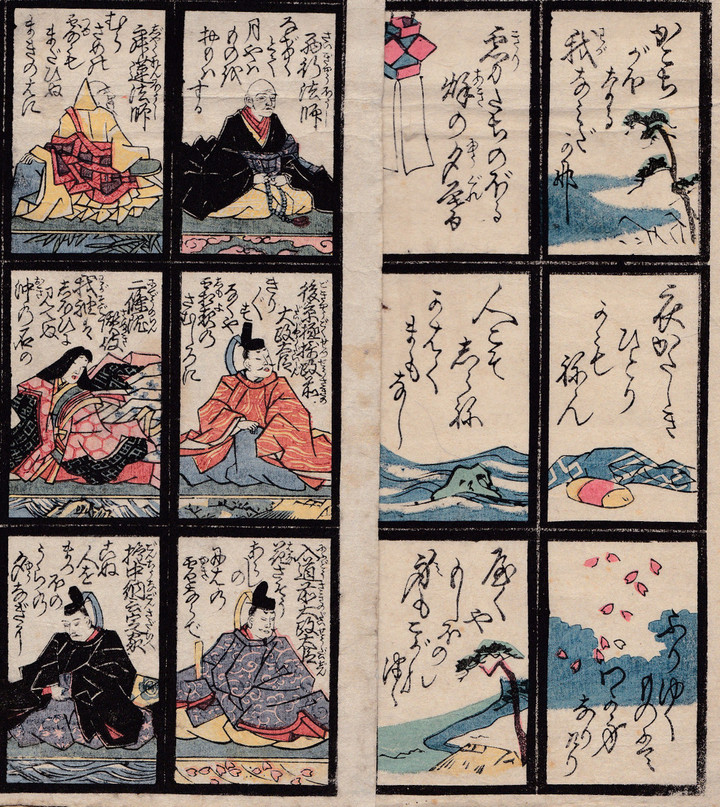 かこち
がほ
なる
我
なみだ
可那
霧たちのぼる
秌の夕暮
西行法師
なげけ
とて
月やは
ものを
思は
する
寂蓮法師
むら
さめの
露も
まだひぬ
まきのはに
衣かたしき
ひとり
かも
ねん
人こそ
しらね
かはく
まも
なし
後京極摂政前
太政大臣
きり
ぎりす
なくや
霜夜の
さむしろに
二條院
讃岐
我袖は
しほひに
見えぬ
沖の石の
ふりゆく
ものは
わが身
なりけり
やくや
もしほの
身もこがれ
つゝ
入道前太政大臣
花さそふ
あらし
の
庭の
雪ならで
権中納言定家
こぬ
人を
まつほの
うらの
夕なぎに